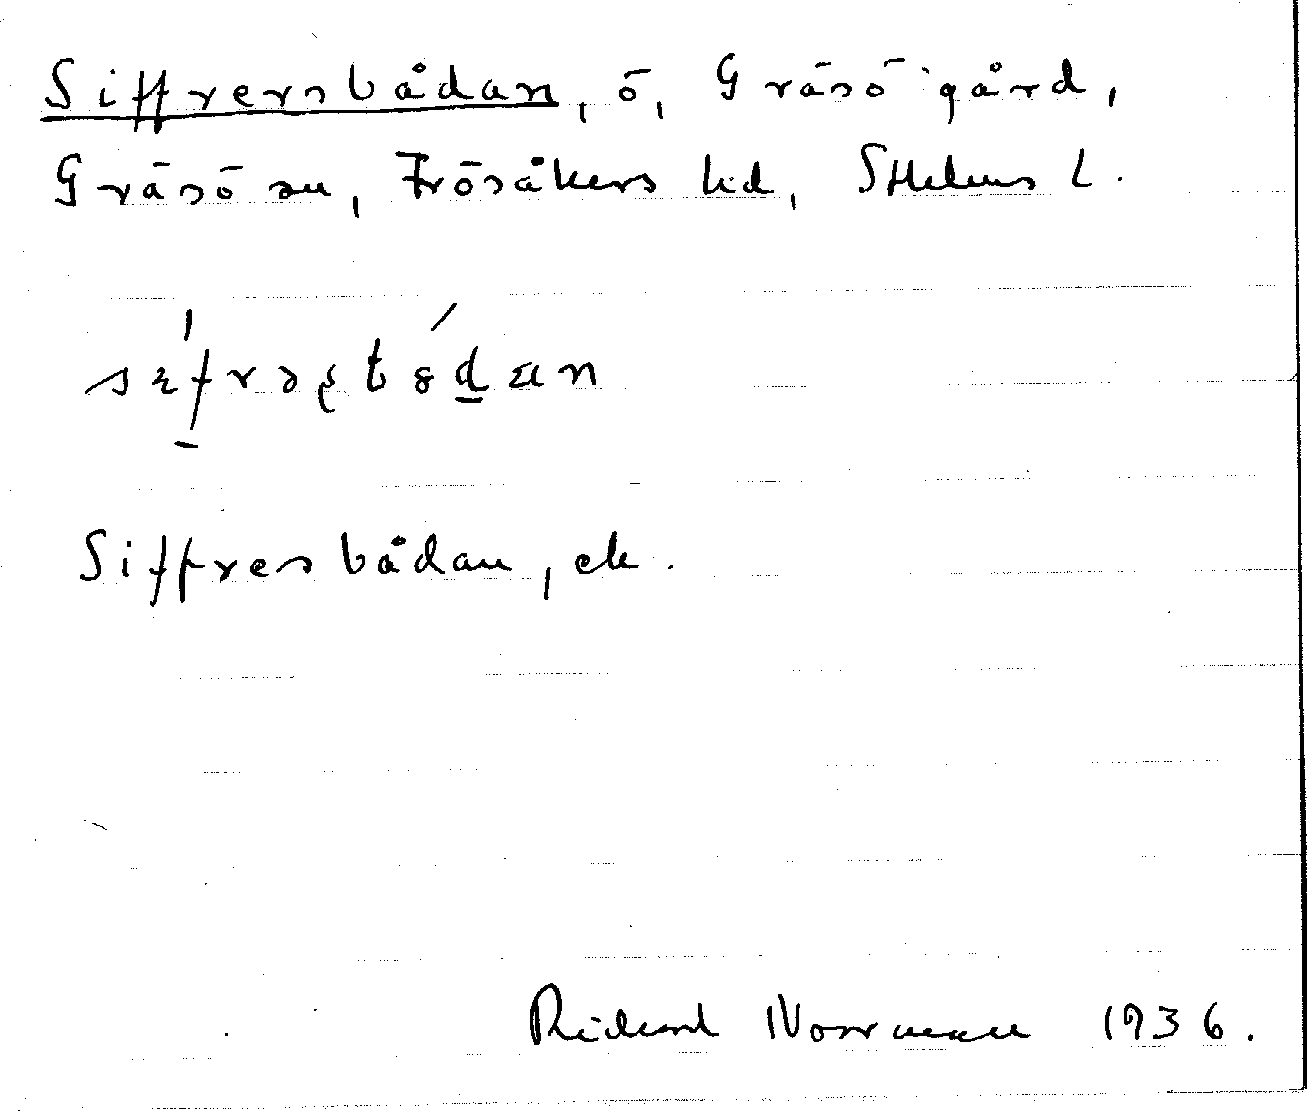 Siffversbådan, ö, Gräsö gård,
Gräsö sn, Frösåkers hd, Sthlms l.
Siffresbådan, ek.
Rickard Norrman 1936.